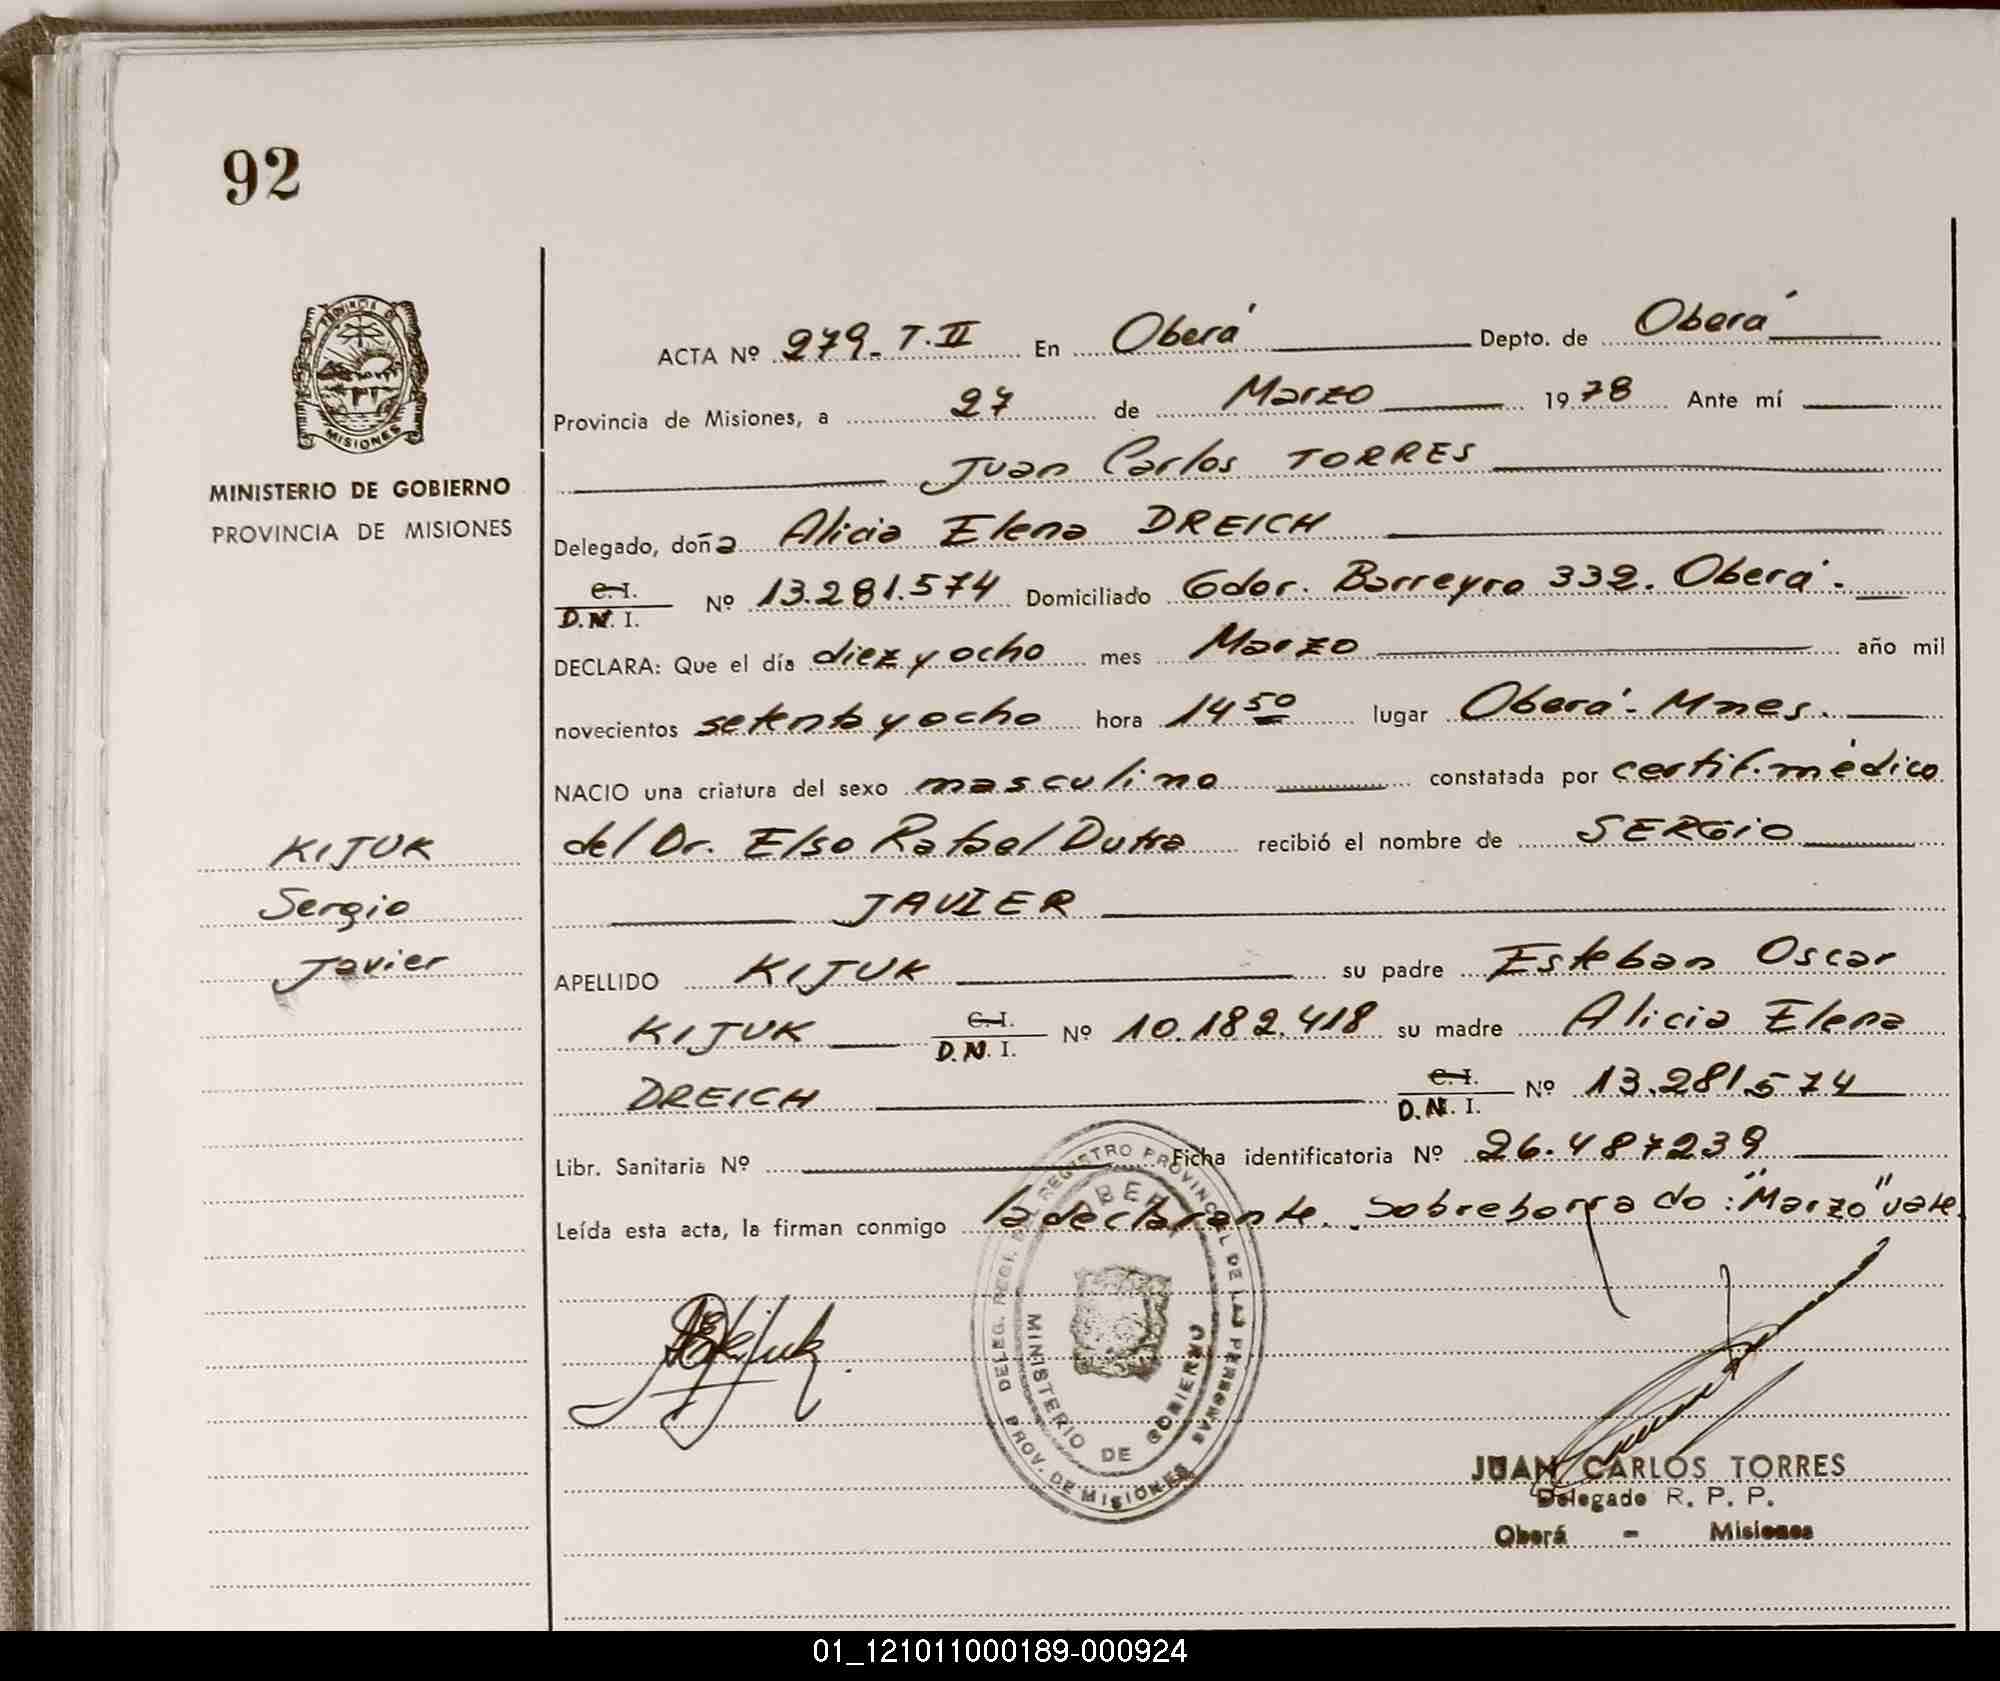 92
PROVINCIA D
MISIONES
MINISTERIO DE GOBIERNO
PROVINCIA DE MISIONES
KIJUK
Sergio
Javier
ACTA Nº 279_ T. II En Oberá Depto. de Oberá
Provincia de Misiones, a 27 de Marzo 1978 Ante mí
Juan Carlos TORRES
Delegado, doña Alicia Elena DREICH
C.I. D.N.I. Nº 13.281.574 Domiciliado Gdor. Barreyro 332. Oberá.
DECLARA: Que el día diez y ocho mes Marzo año mil
novecientos setenta y ocho hora 14 50 lugar Oberá - Mnes.
NACIO una criatura del sexo masculino constatada por certif. médico
del Dr. Elso Rafael Dutra recibió el nombre de SERGIO
JAVIER
APELLIDO KIJUK su padre Esteban Oscar
KIJUK C.I. D.N.I. Nº 10.182.418 su madre Alicia Elena
DREICH C.I. D.N.I. Nº 13.281.574
Libr. Sanitaria Nº Ficha identificatoria Nº 26.487239
Leída esta acta, la firman conmigo la declarante. Sobreborrado: "Marzo" vale.
REGISTRO PROVINCIAL DE LAS PERSONAS
PROV. DE MISIONES
MINISTERIO DE GOBIERNO
JUAN CARLOS TORRES
Delegado R. P. P.
Oberá - Misiones
01_121011000189-000924